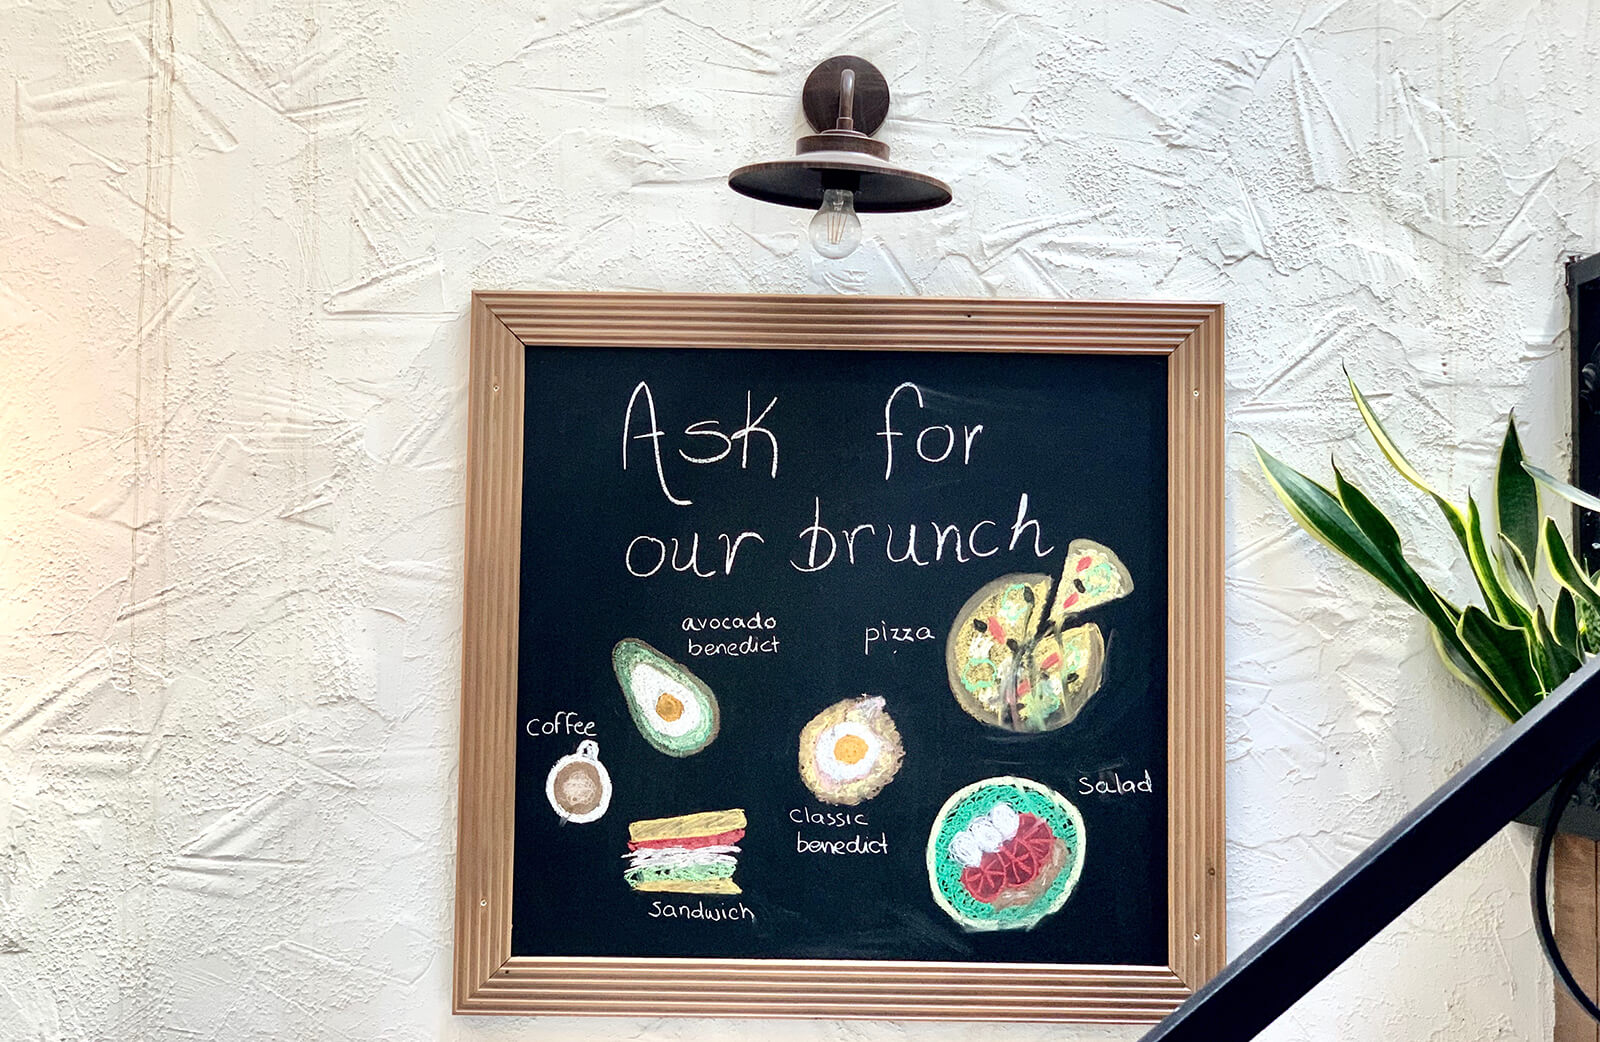 Ask for
our brunch
avocado
benedict
pizza
coffee
classic
benedict
salad
sandwich